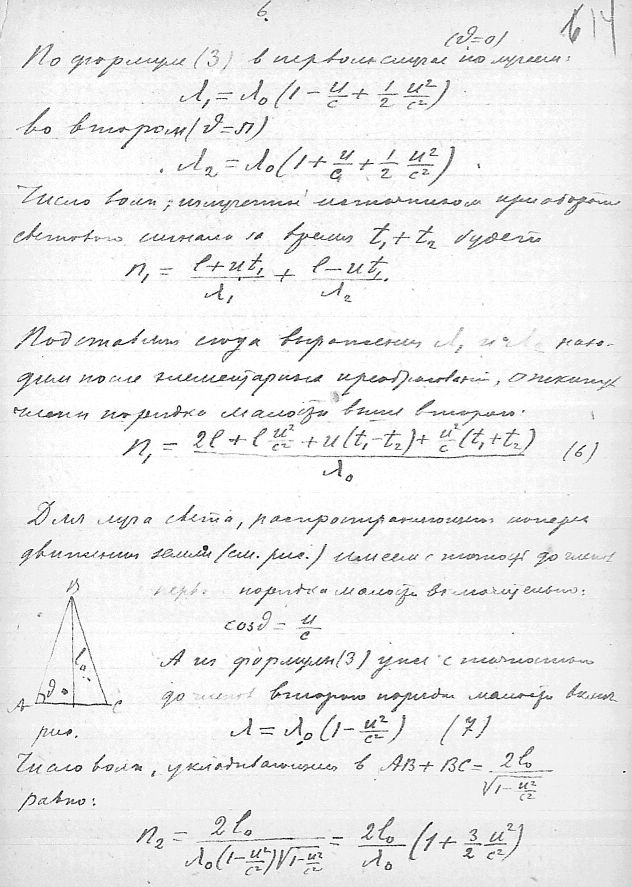 6.
614
(ϑ=0)
По формуле (3) в первом случае получаем:
λ₁ = λ₀ (1 − u/c + 1/2 u²/c²)
во втором (ϑ=π)
λ₂ = λ₀ (1 + u/c + 1/2 u²/c²).
Число волн, излученных источником при обороте
светового сигнала за время t₁ + t₂ будет
n₁ = (l + ut₁)/λ₁ + (l − ut₁)/λ₂.
Подставляя сюда выражения λ₁ и λ₂ нахо-
дим после элементарных преобразований, откинув
члены порядка малости выше второго:
n₁ = (2l + l u²/c² + u(t₁−t₂) + u²/c (t₁+t₂))/λ₀ (6)
Для луча света, распространяющегося поперек
движения земли (см. рис.) имеем с точност до членов
перв порядка малости включительно:
cosϑ = u/c
А из формулы (3) уже с точностью
до членов второго порядка малости включ
λ = λ₀ (1 − u²/c²) (7)
B
l₀
ϑ
A
C
рис.
Число волн, укладывающихся в AB + BC = 2l₀/√(1−u²/c²)
равно:
n₂ = 2l₀/(λ₀(1−u²/c²)√(1−u²/c²)) = 2l₀/λ₀ (1 + 3/2 u²/c²)